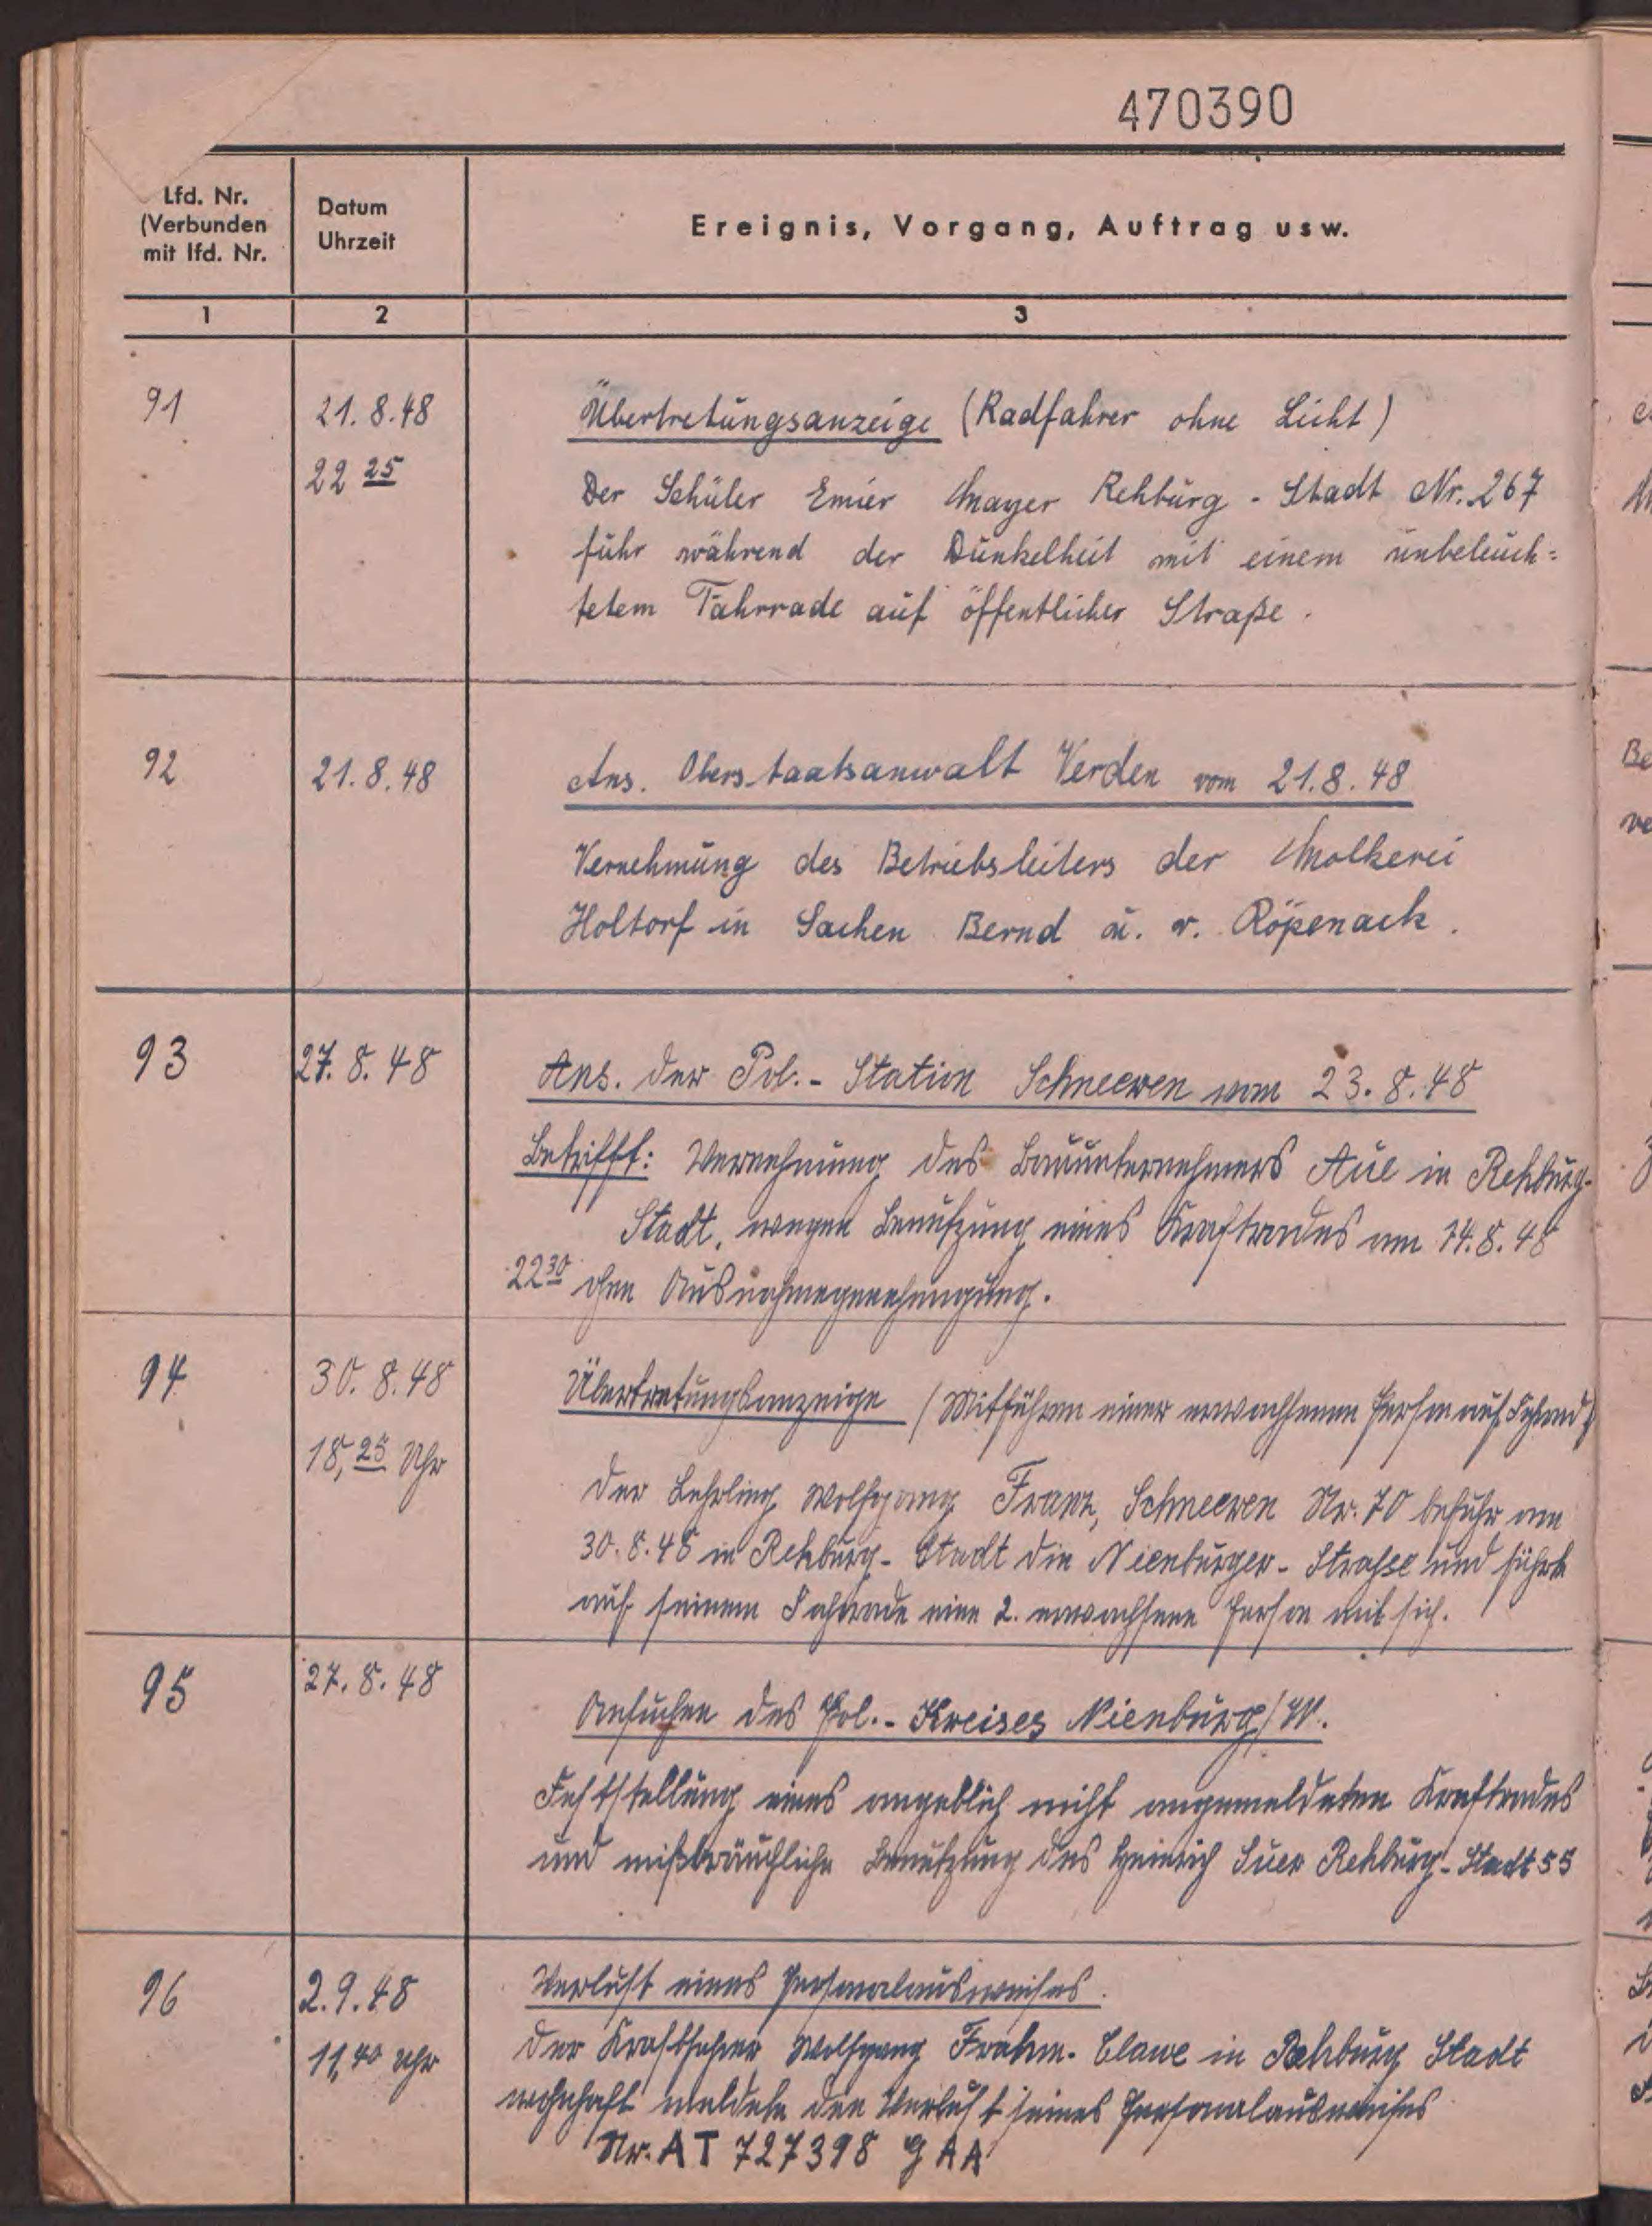 470390
Lfd. Nr.
(Verbunden
mit lfd. Nr.
Datum
Uhrzeit
Ereignis, Vorgang, Auftrag usw.
1 2 3
91 21.8.48 Übertretungsanzeige (Radfahrer ohne Licht)
22 25 Der Schüler Emier Mayer Rehburg - Stadt Nr. 267
fuhr während der Dunkelheit mit einem unbeleuch=
tetem Fahrrade auf öffentlicher Straße.
92 21.8.48 Ans. Oberstaatsanwalt Verden vom 21.8.48
Vernehmung des Betriebsleiters der Molkerei
Holtorf in Sachen Bernd u. v. Röpenack.
93 27.8.48 Ans. der Pol.- Station Schneeren vom 23.8.48
Betrifft: Vernehmung des Bauunternehmers Aue in Rehburg-
Stadt, wegen Benutzung eines Kraftrades am 14.8.48
22 30 ohne Ausnahmegenehmigung.
94 30.8.48 Übertretungsanzeige (Mitführen einer erwachsenen Person auf Fahrrad)
18,25 Uhr
Der Lehrling Wolfgang Franz, Schneeren Nr. 70 befuhr am
30.8.48 in Rehburg- Stadt die Nienburger- Strasse und führte
auf seinem Fahrrade eine 2. erwachsene Person mit sich.
95 27.8.48
Ansuchen des Pol.- Kreises Nienburg/W.
Feststellung eines angeblich nicht angemeldeten Kraftrades
und mißbräuchliche Benutzung des Heinrich Suer Rehburg- Stadt 55
96 2.9.48 Verlust eines Personalausweises.
11,40 Uhr Der Kraftfahrer Wolfgang Frahm- Clawe in Rehburg Stadt
wohnhaft meldete den Verlust seines Personalausweises
Nr. AT 727398 G AA